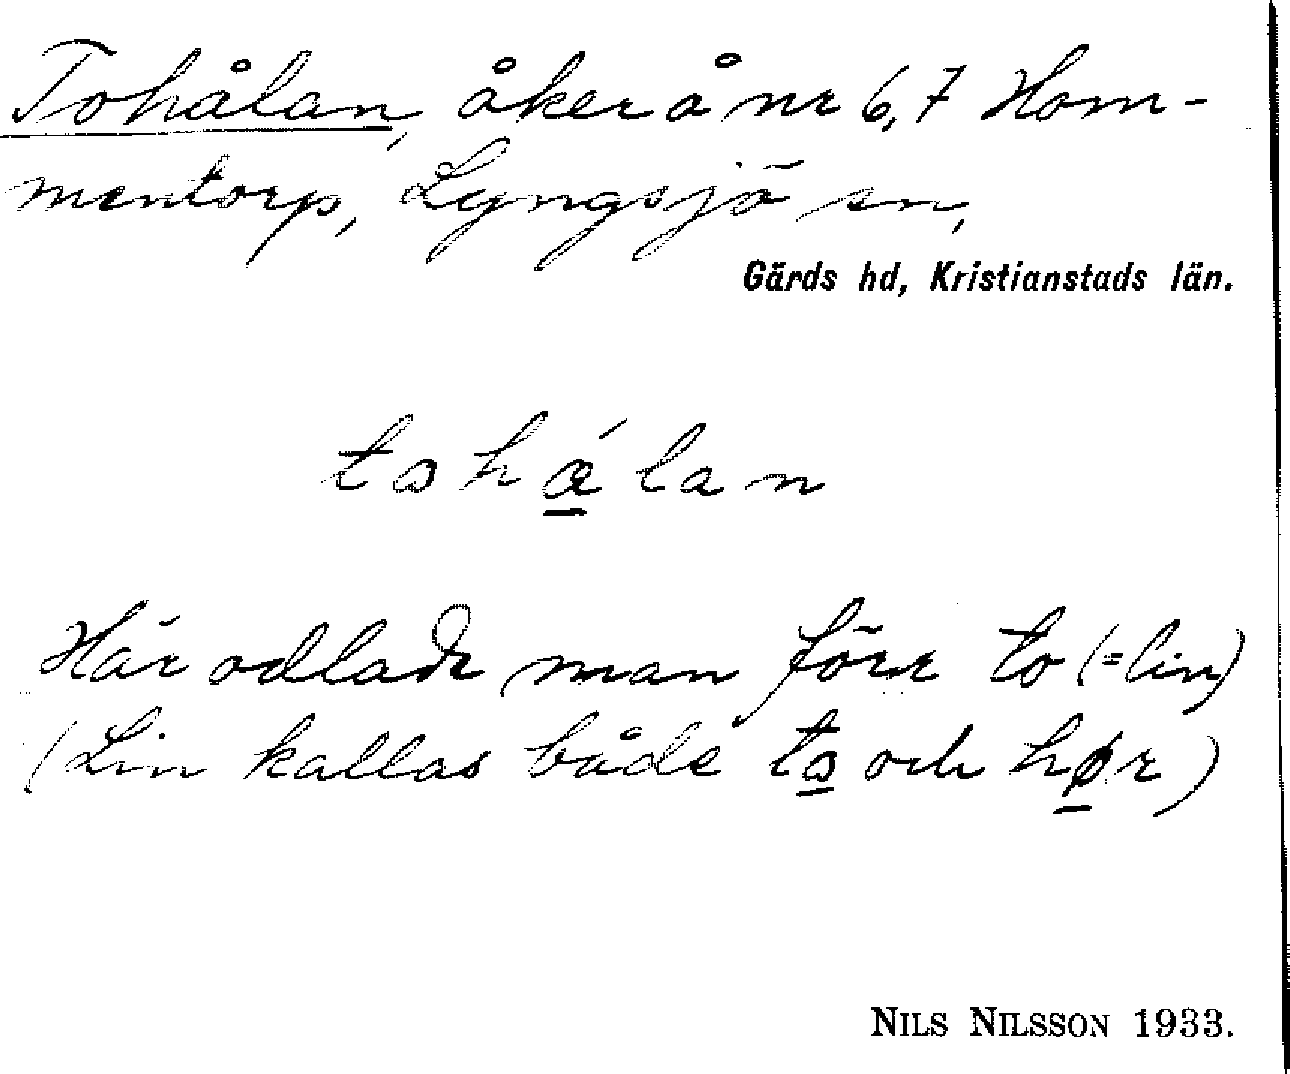 Tohålan, åker å nr 6,7 Hom-
mentorp, Lyngsjö sn,
Gärds hd, Kristianstads län.
tohǽlan
Här odlade man förr to (=lin)
(Lin kallas både to och hør)
NILS NILSSON 1933.